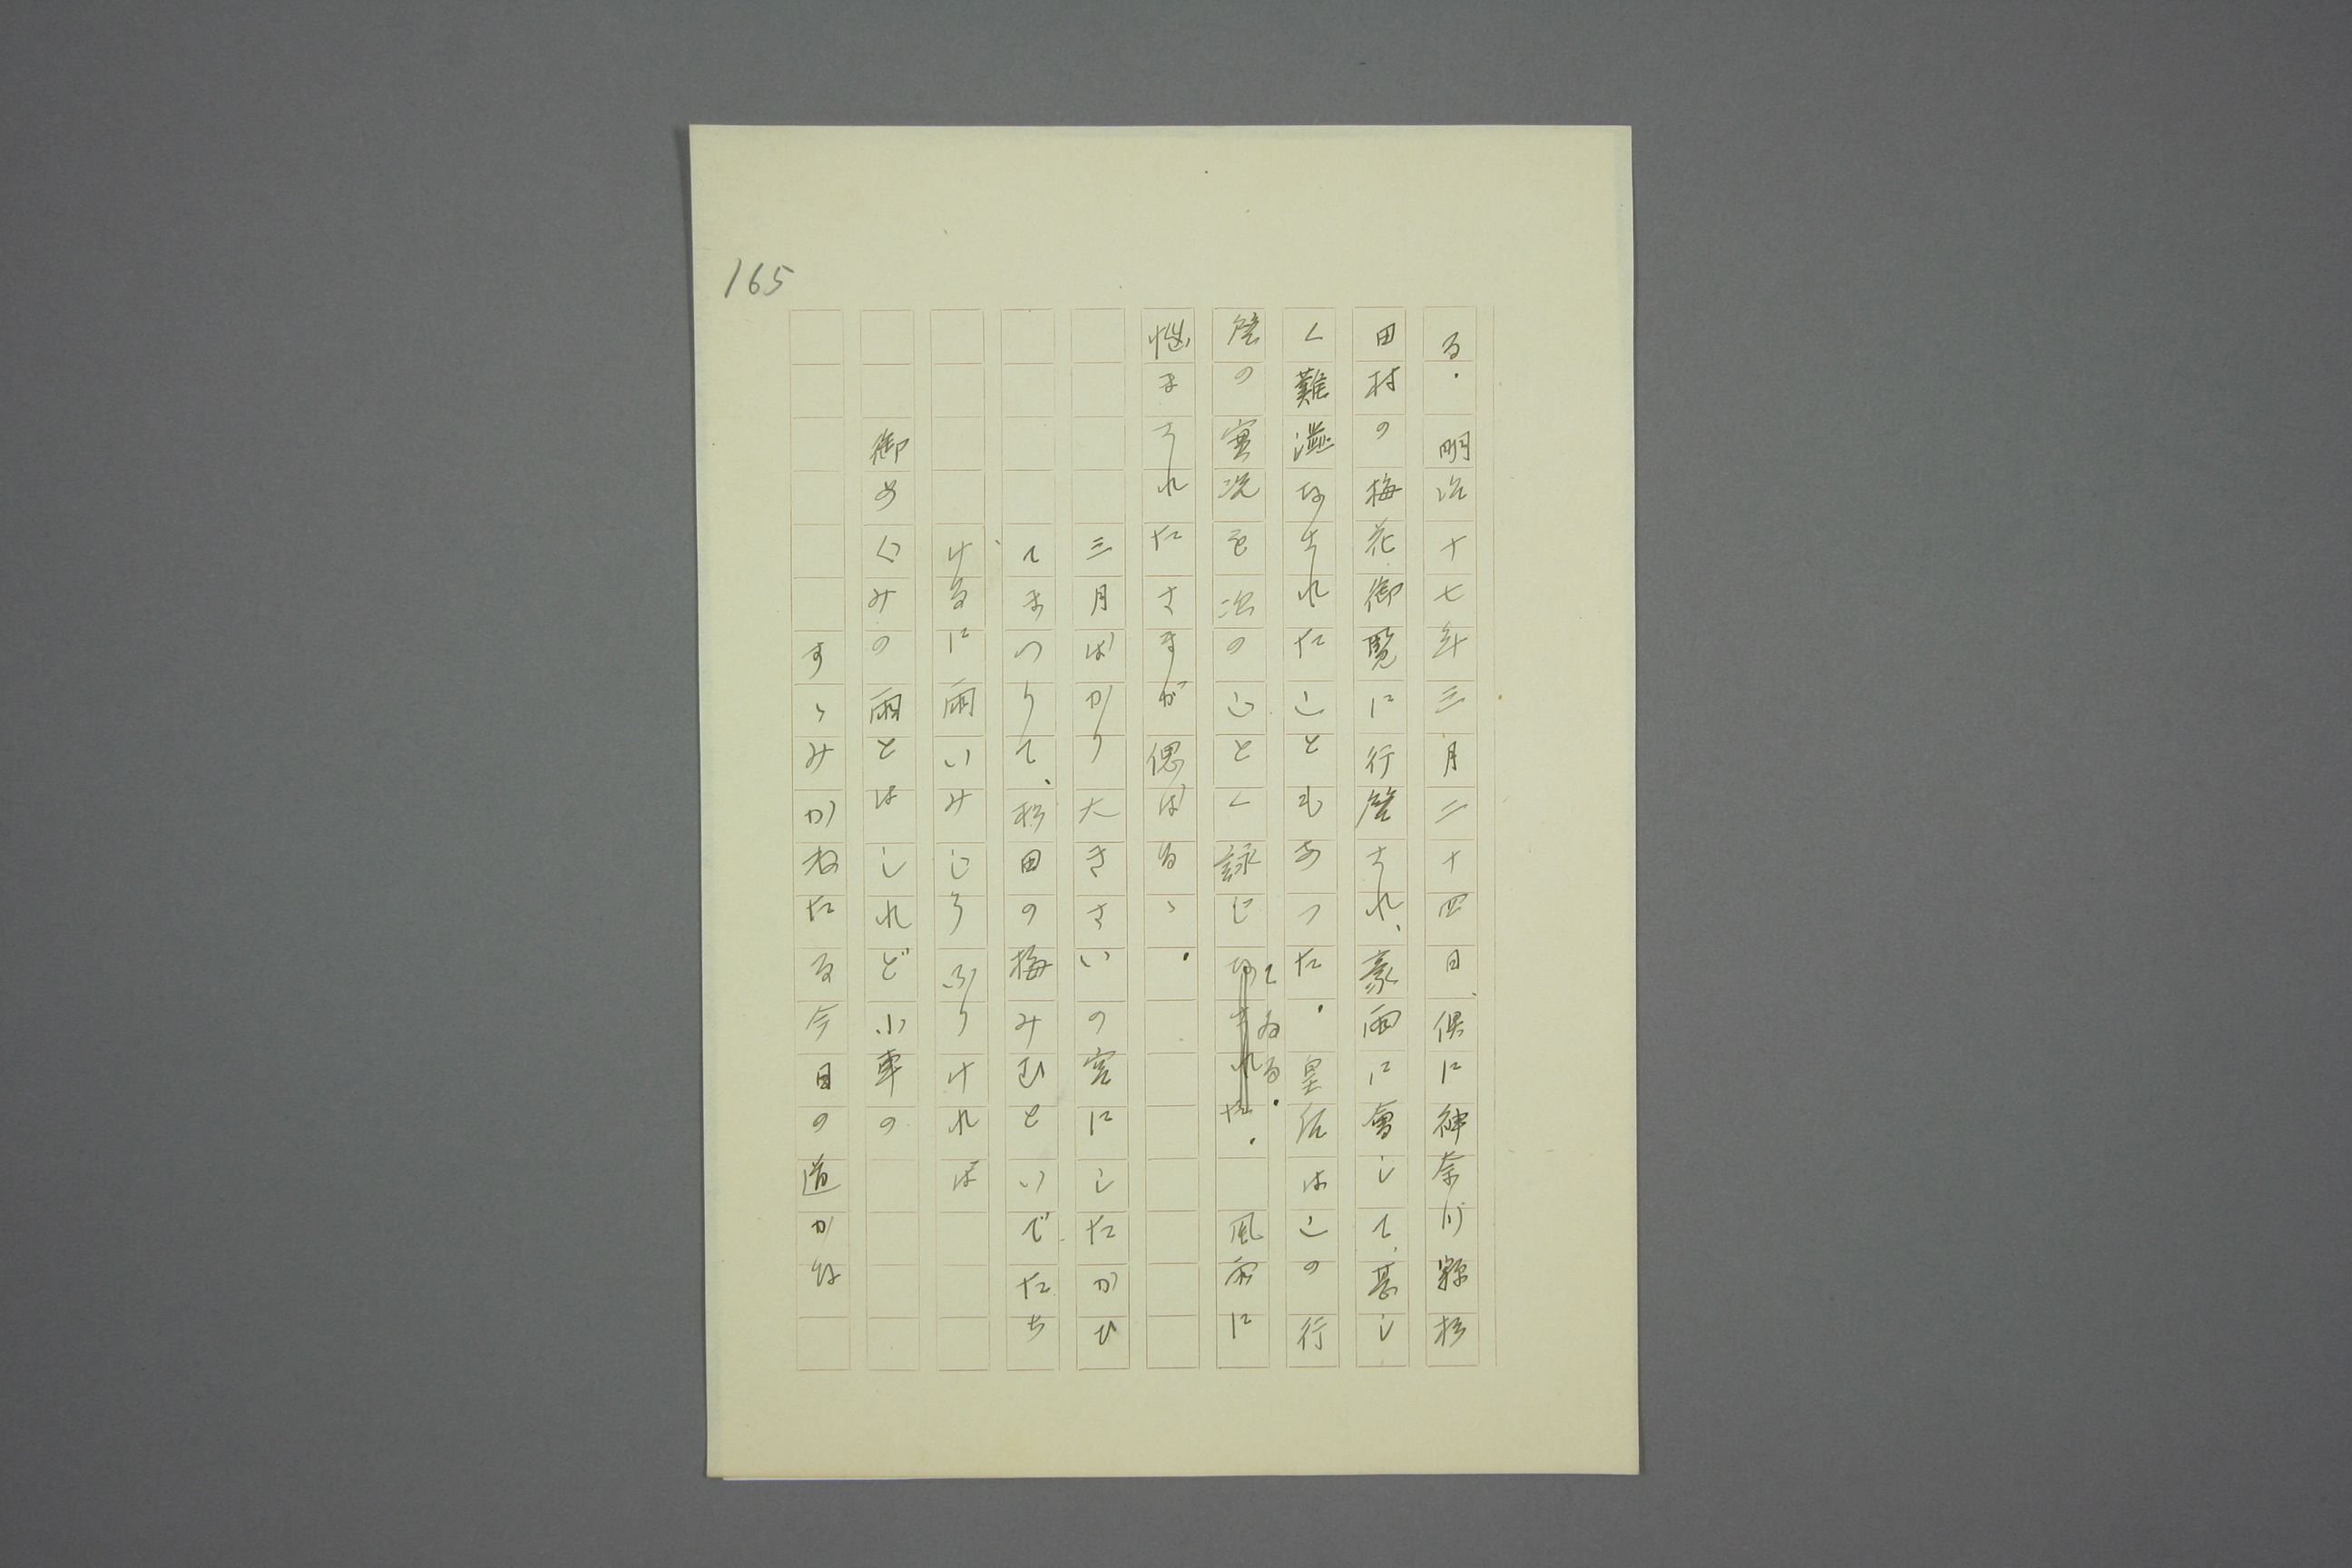 165
る。明治十七年三月二十四日、倶に神奈川縣杉
田村の梅花御覽に行啓され、豪雨に會して、甚し
く難澁なされたこともあつた。皇后はこの行
啓の實況を次のごとく詠じてゐる。風雨に
惱まされたさまが偲ばるゝ。
三月ばかり大きさいの宮にしたかひ
てまつりて、杉田の梅みむといでたち
けるに雨いみじうふりければ
御めぐみの雨とはしれど小車の
すゝみかねたる今日の道かな